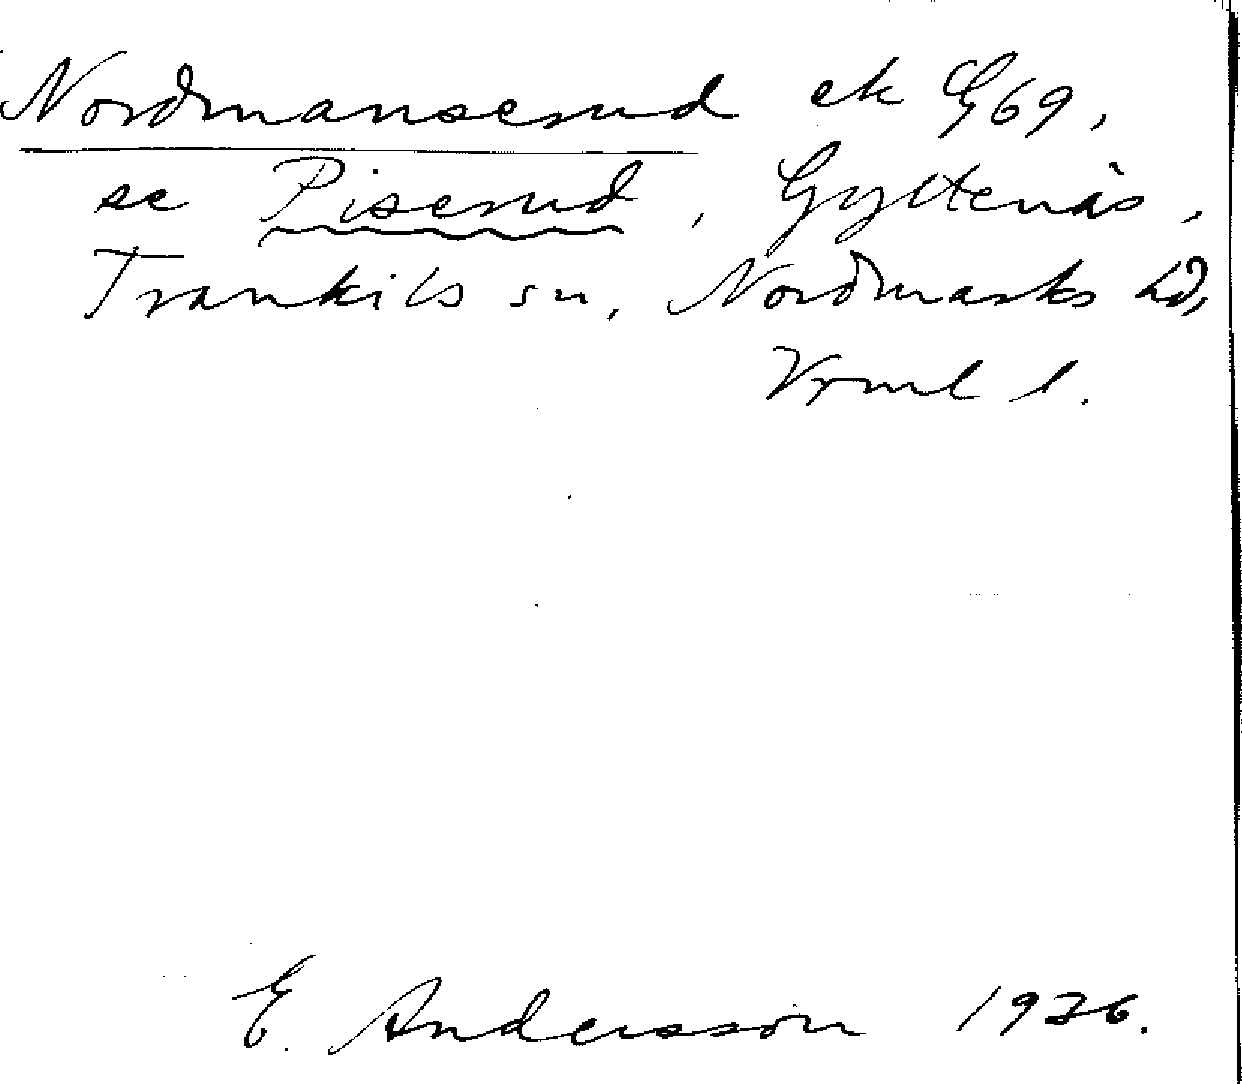 Nordmanserud ek G69,
se Piserud, Gyltenäs,
Trankils sn, Nordmarks hd,
Vrml l.
E. Andersson 1926.